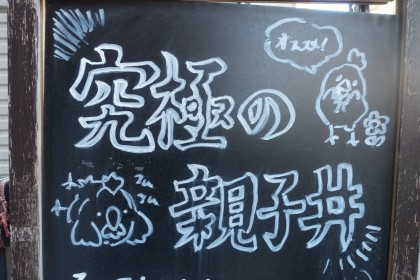 オススメ!
究極の
親子丼